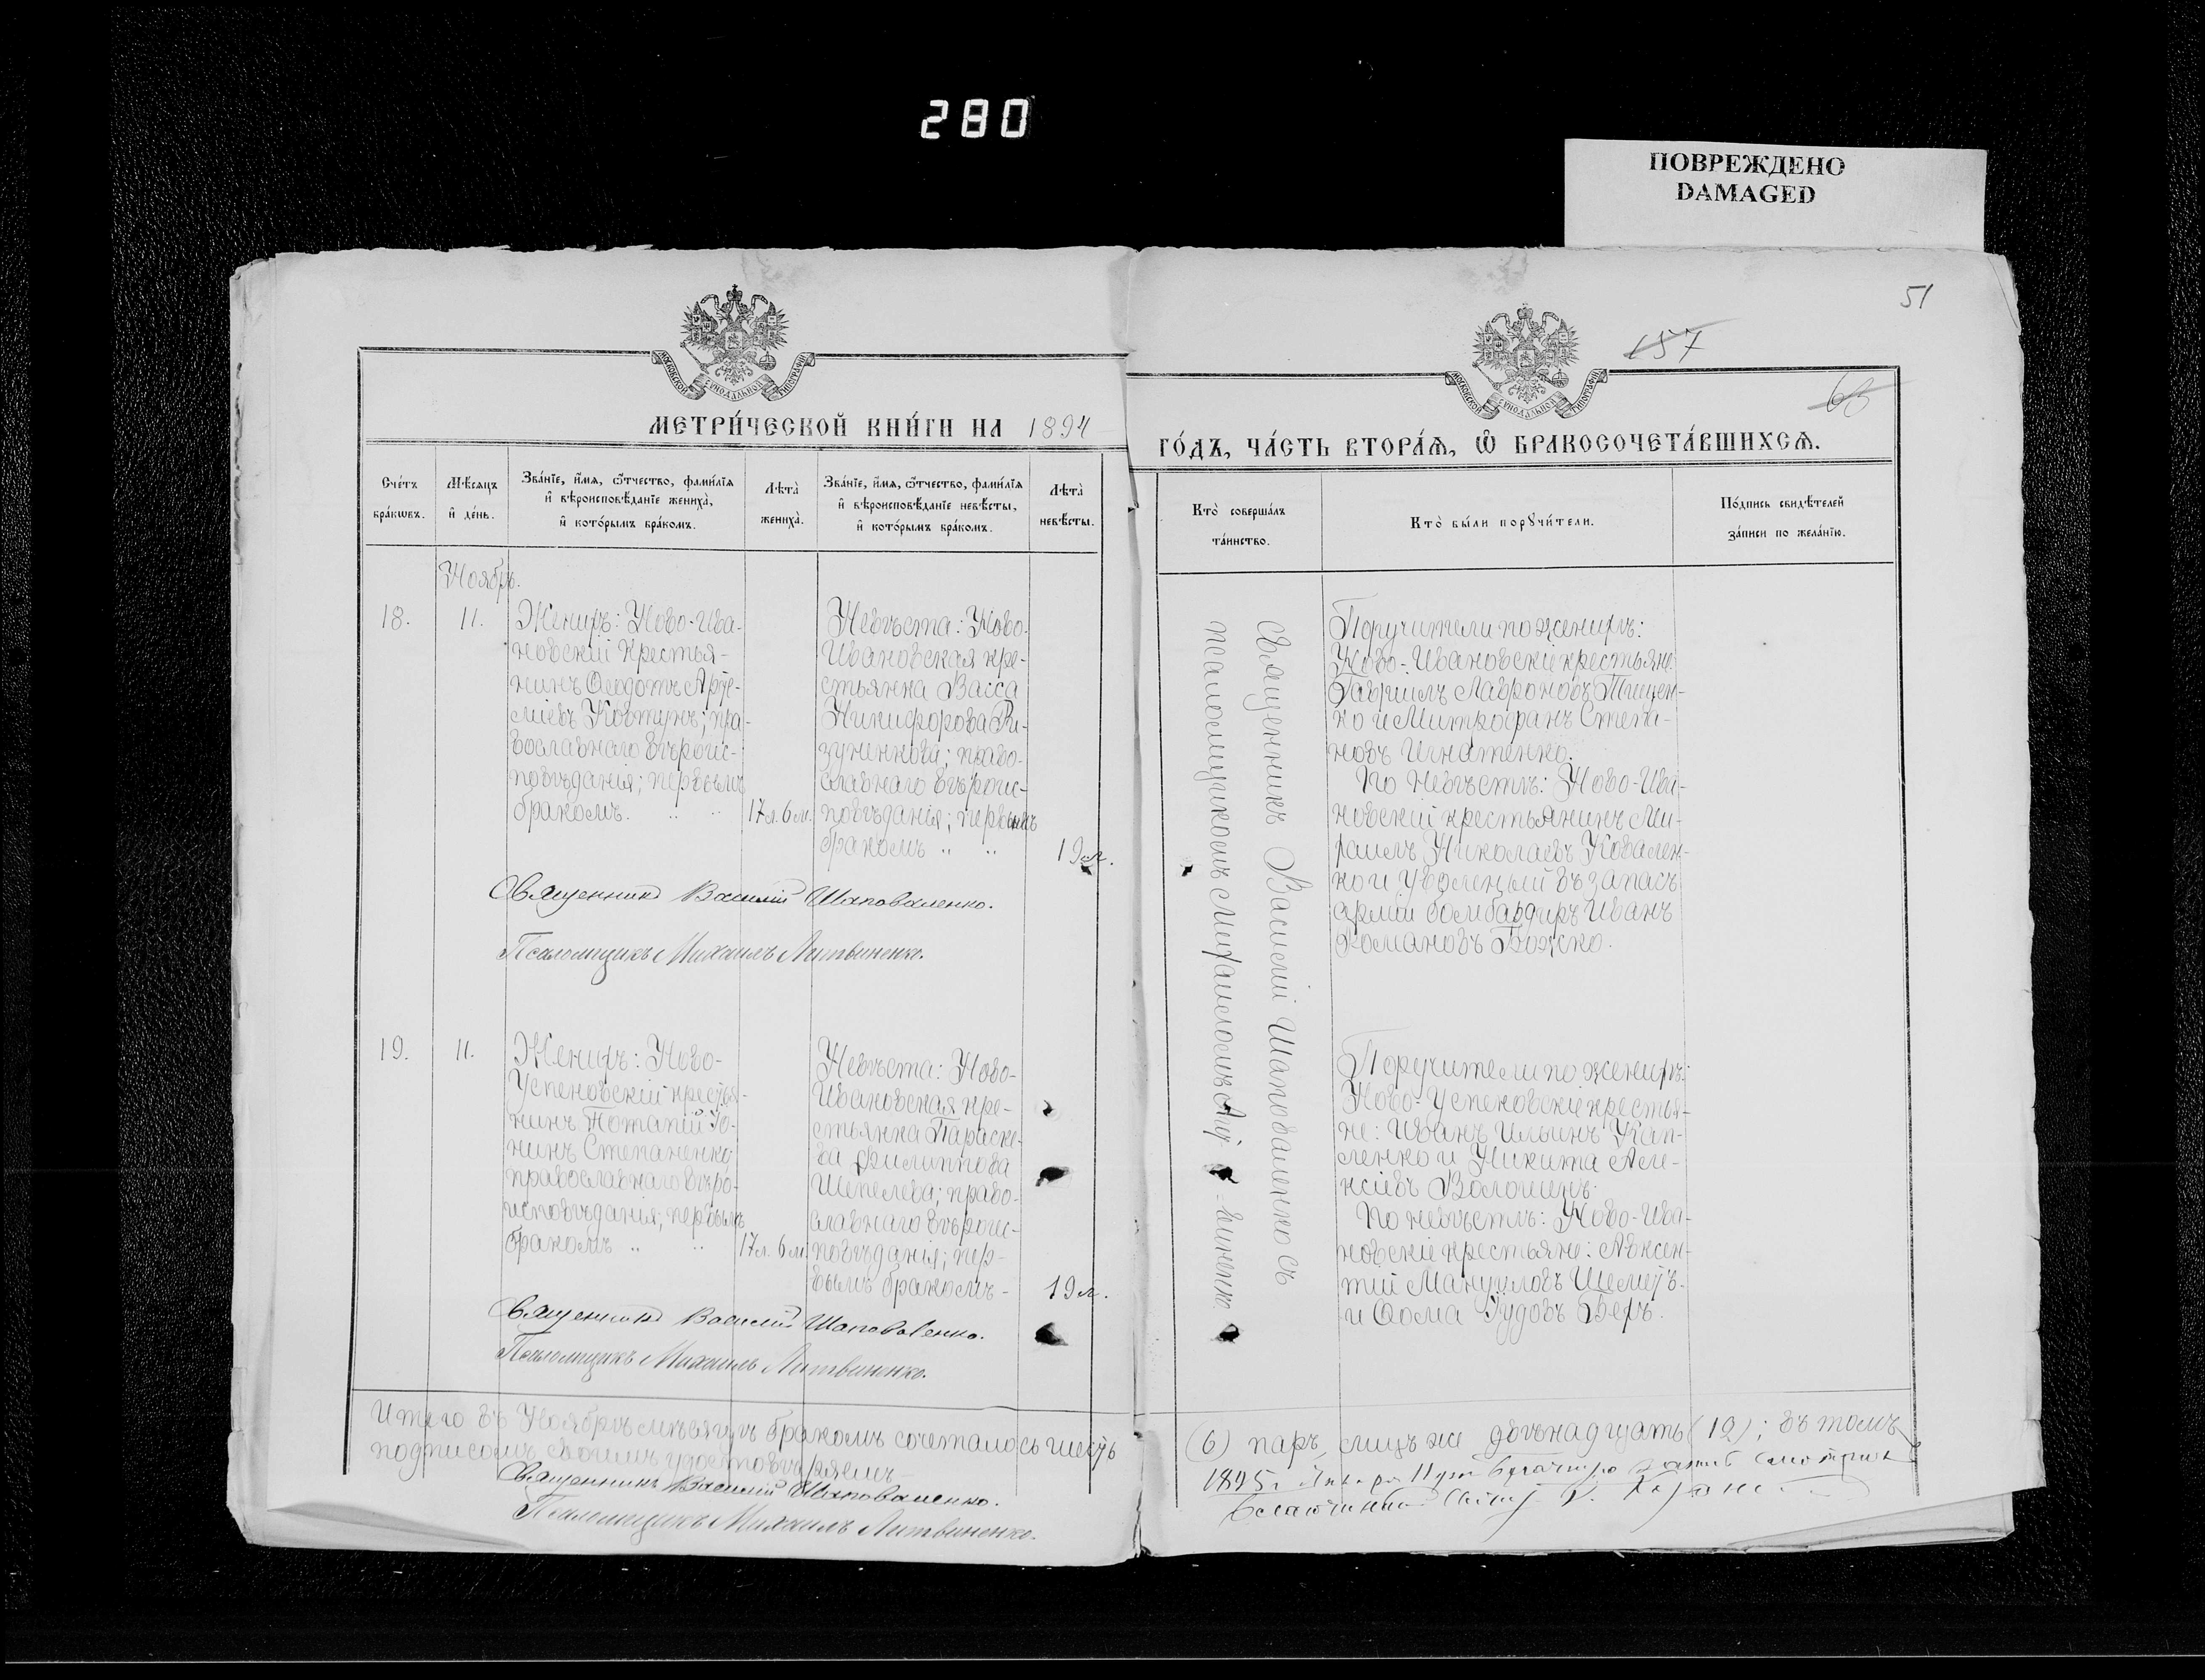 280
ПОВРЕЖДЕНО
DAMAGED
51
157
МОСКОВСКОЙ СѴНОДАЛЬНОЙ ТИПОГРАФІИ
МОСКОВСКОЙ СѴНОДАЛЬНОЙ ТИПОГРАФІИ
МЕТРИ́ЧЕСКОЙ КНИ́ГИ НА 1894
ГО́ДЪ, ЧА́СТЬ ВТОРА́Ѧ, Ѽ БРАКОСОЧЕТА́ВШИХСѦ.
Сче́тъ
бра́кѡвъ.
Мѣ́сяцъ
и҆ де́нь.
Зва́нїе, и҆́мя, ѻ҆́тчество, фами́лїя
и҆ вѣроисповѣ́данїе жениха̀,
и҆ кото́рымъ бра́комъ.
Лѣта̀
жениха̀.
Зва́нїе, и҆́мя, ѻ҆́тчество, фами́лїя
и҆ вѣроисповѣ́данїе невѣ́сты,
и҆ кото́рымъ бра́комъ.
Лѣта̀
невѣ́сты.
Кто̀ соверша́лъ
та́инство.
Кто̀ бы́ли порꙋчи́тели.
По́дпись свидѣ́телей
за́писи по жела́нїю.
Ноябрь.
18.
11.
Женихъ: Ново-Ива-
новскій крестья-
нинъ Ѳеодотъ Арте-
міевъ Ковтунъ; пра-
вославнаго вѣроис-
повѣданія; первымъ
бракомъ. " "
17 л. 6 м.
Невѣста: Ново-
Ивановская кре-
стьянка Васса
Никифорова Ри-
зуненкова; право-
славнаго вѣроис-
повѣданія; первымъ
бракомъ " "
19 л.
Священникъ Василій Шаповаленко съ
псаломщикомъ Михаиломъ
Поручители по женихѣ:
Ново-Ивановскіе крестьяне
Гавріилъ Лавроновъ Тищен-
ко и Митрофанъ Степа-
новъ Игнатенко.
По Невѣстѣ: Ново-Ива-
новскій крестьянинъ Ми-
хаилъ Николаевъ Ковален-
ко и уволенный въ запасъ
арміи бомбардиръ Иванъ
Романовъ Божко.
Священникъ Василій Шаповаленко.
Псаломщикъ Михаилъ Литвиненко.
19.
11.
Женихъ: Ново-
Успеновскій крестья-
нинъ Потапій Іо-
нинъ Степаненко
православнаго вѣро-
исповѣданія; первымъ
бракомъ " "
17 л. 6 м.
Невѣста: Ново-
Ивановская кре-
стьянка Параске-
ва Филиппова
Шепелева; право-
славнаго вѣроис-
повѣданія; пер-
вымъ бракомъ -
19 л.
Поручители по женихѣ:
Ново-Успеновскіе крестья-
не: Иванъ Ильинъ Кап-
ленко и Никита Але-
ксіевъ Волошенъ.
По невѣстѣ: Ново-Ива-
новскіе крестьяне: Авксен-
тій Мануиловъ
и Ѳома Іудовъ
Священникъ Василій Шаповаленко.
Псаломщикъ Михаилъ Литвиненко.
Итого въ Ноябрѣ мѣсяцѣ бракомъ сочеталось шесть
(6) паръ, лицъ же двѣнадцать (12); въ томъ
подписомъ своимъ удостовѣряемъ
Священникъ Василій Шаповаленко.
Псаломщикъ Михаилъ Литвиненко.
1895 г. Января 11 дня